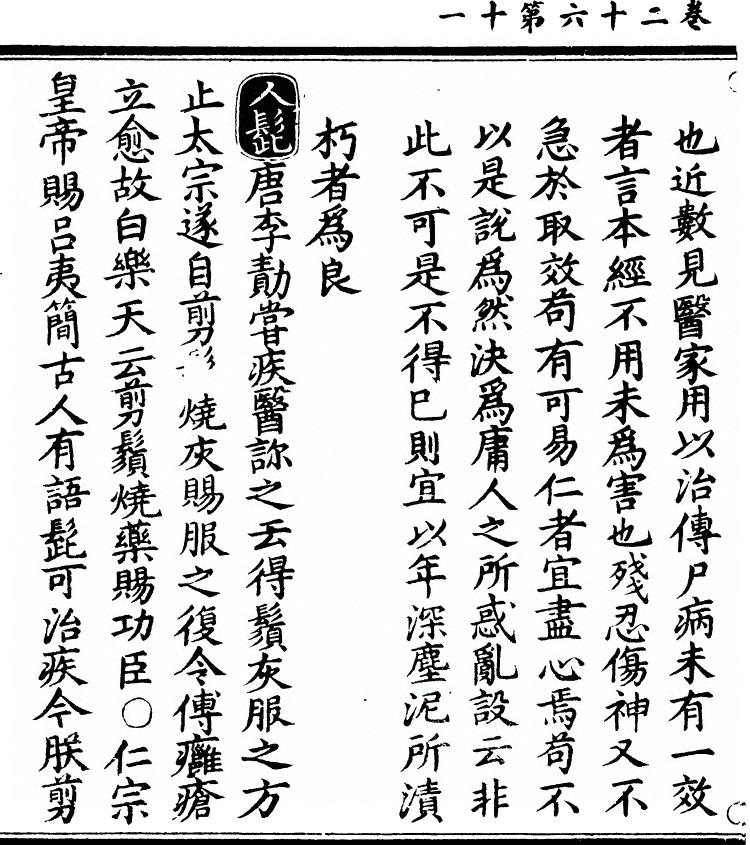 卷二十六第十一
也近數見醫家用以治傳尸病未有一效
者言本經不用未爲害也殘忍傷神又不
急於取效苟有可易仁者宜盡心焉苟不
以是說爲然決爲庸人之所惑亂設云非
此不可是不得已則宜以年深塵泥所漬
朽者爲良
人髭唐李勣嘗疾醫診之云得鬚灰服之方
止太宗遂自剪燒灰賜服之復令傅癰瘡
立愈故白樂天云剪鬚燒藥賜功臣○仁宗
皇帝賜呂夷簡古人有語髭可治疾今朕剪